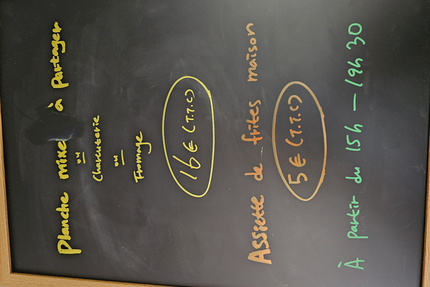 Planche mixe à partager
ou
Charcuterie
ou
Fromage
16€ (T.T.C)
Assiette de frites maison
5€ (T.T.C)
À partir du 15h – 19h30